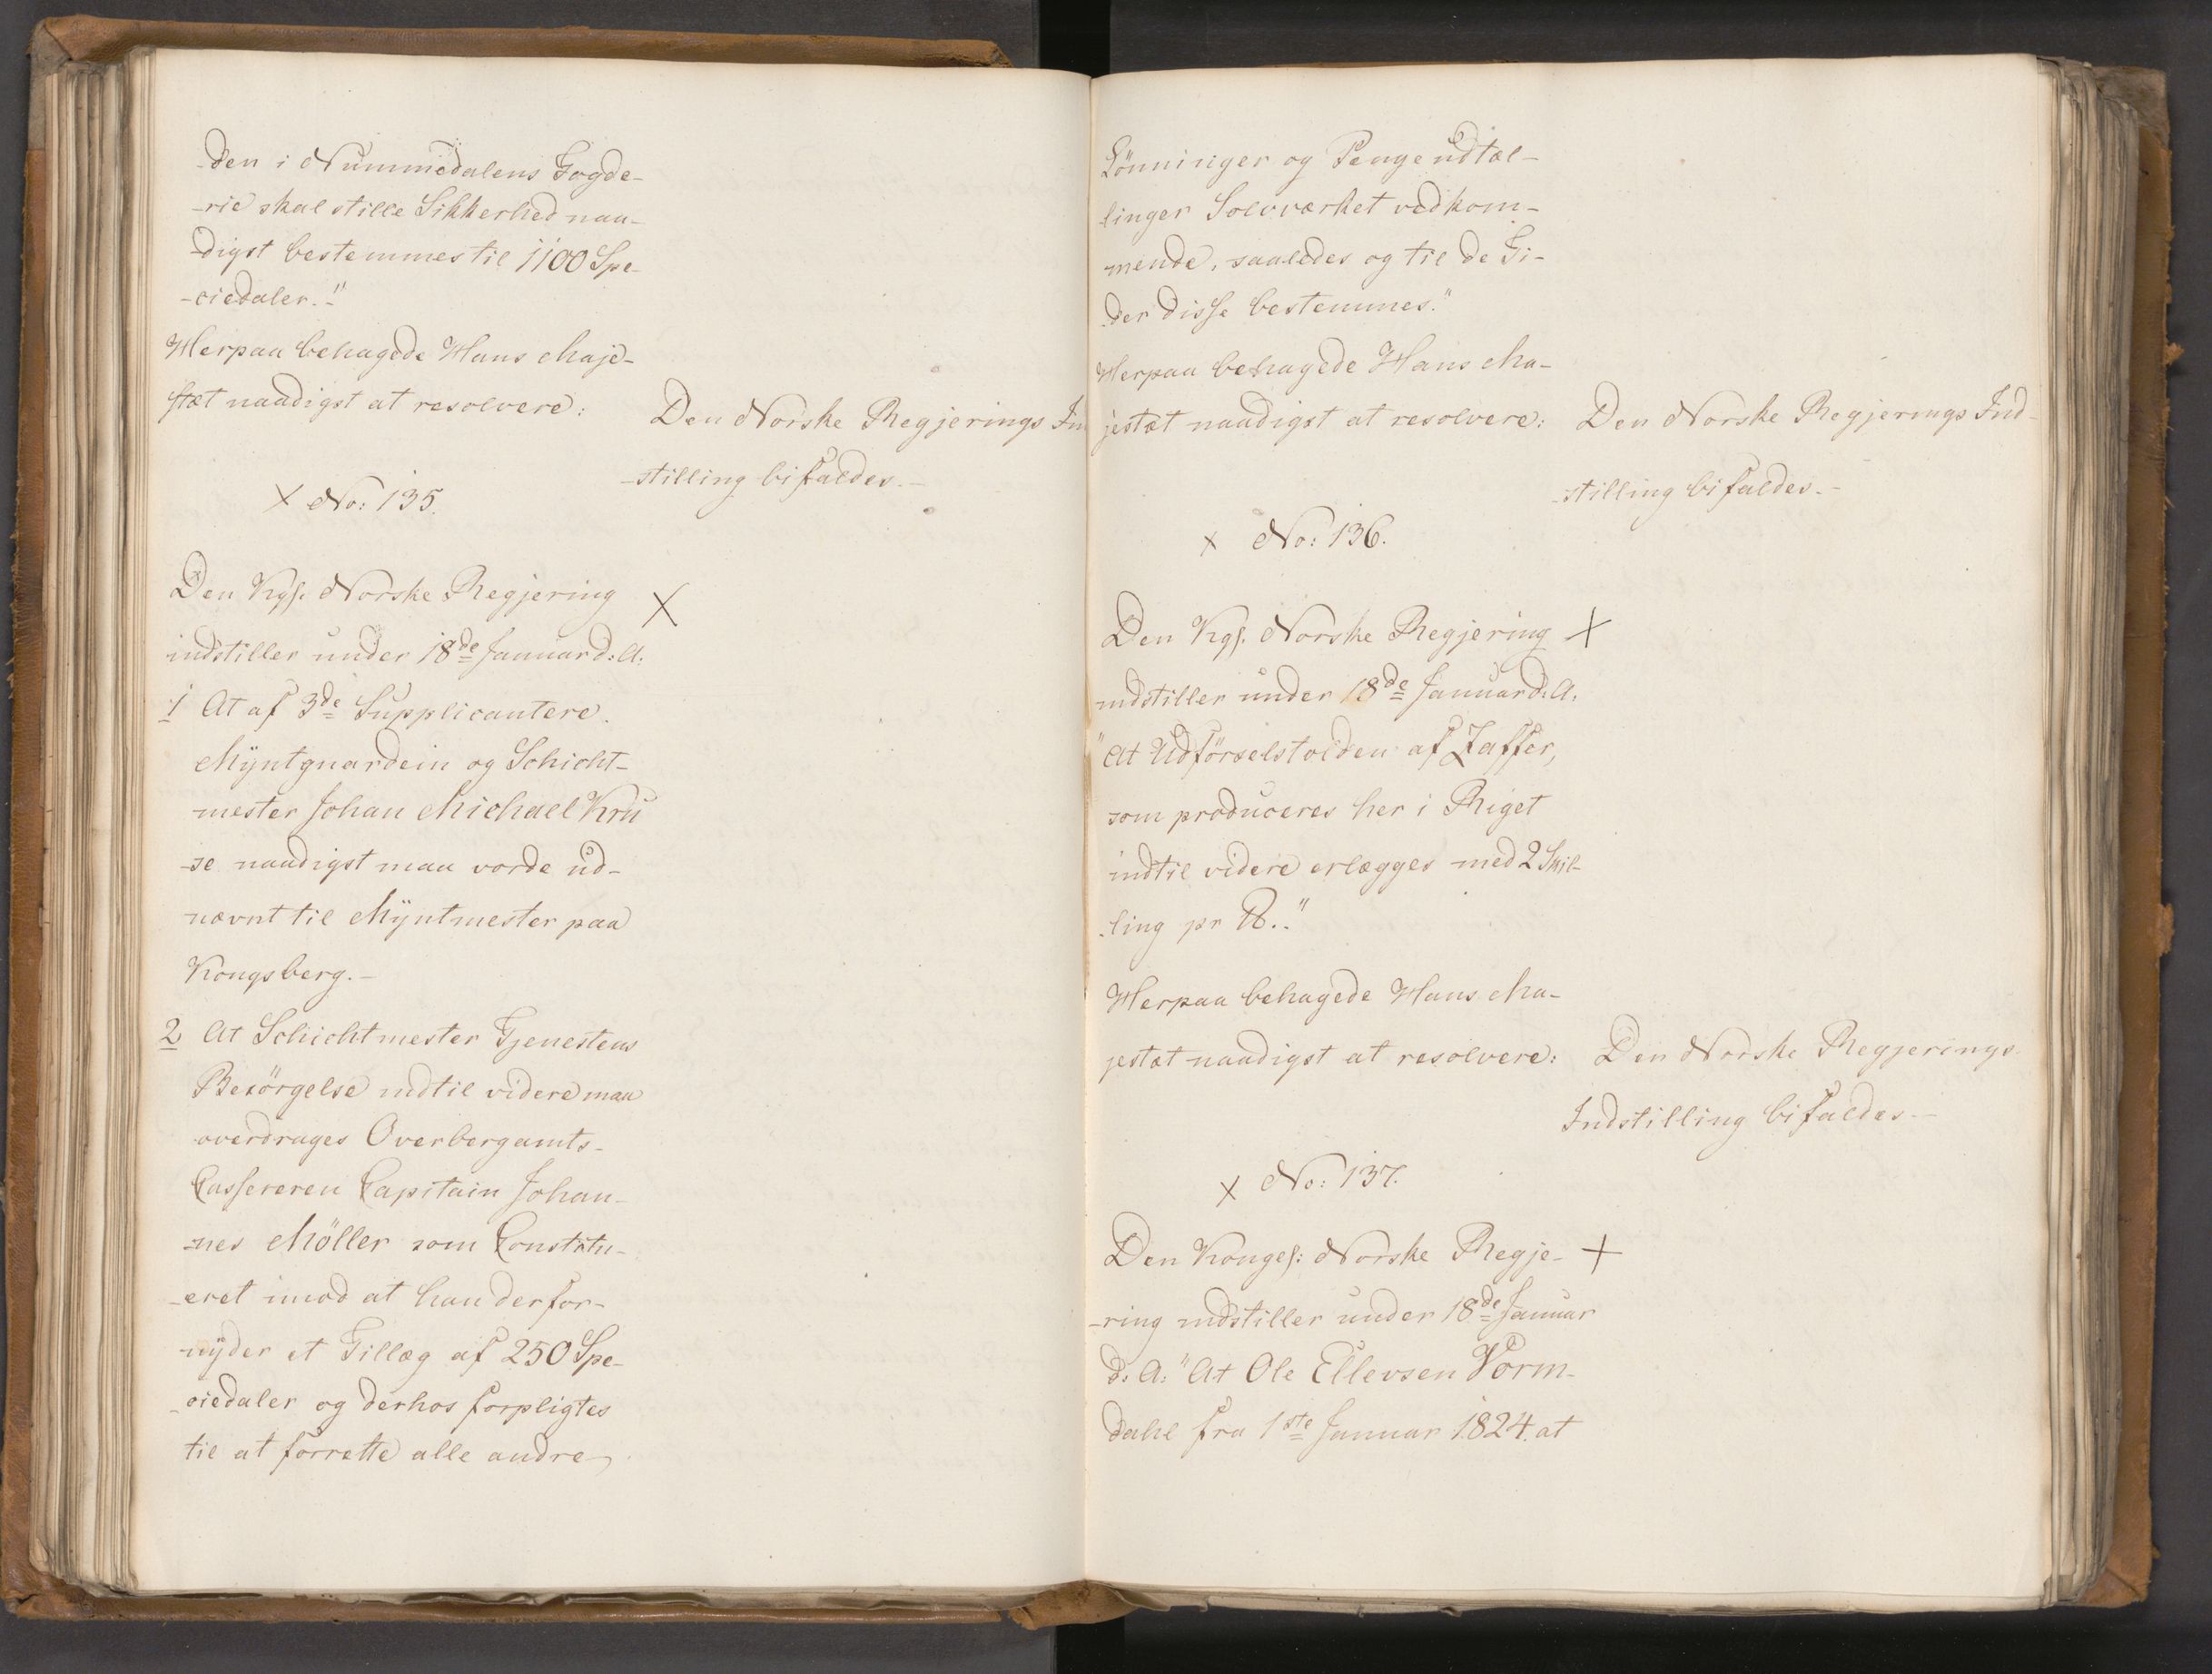 -den i Nummedalens Fogde-
-rie skal stille Sikkerhed naa-
-digst bestemmes til 1100 Spe-
-ciedaler."
Herpaa behagede Hans Maje-
stæt naadigst at resolvere:
Den Norske Regjerings In
-stilling bifaldes.-
X No: 135.
Den Kgl. Norske Regjering X
indstiller under 18de Januar d: A:
1 At af 3de Supplicantere
Myntguardein og Schicht-
mester Johan Michael Kru
-se naadigst maa vorde ud-
nævnt til Myntmester paa
Kongsberg.-
2 At Schichtmester Tjenestens
Besörgelse indtil videre maa
overdrages Overbergamts-
Casserer­en Capitain Johan-
-nes Möller som Constitu-
-eret imod at han derfor-
nyder et Tillæg af 250 Spe-
-ciedaler og derhos forpligtes
til at forrette alle andre
Lönninger og Pengeudtæl-
linger Solvværket vedkom-
mende, saaledes og til de Ti-
-der disse bestemmes."
Herpaa behagede Hans Ma-
jestæt naadigst at resolvere:
Den Norske Regjerings Ind-
-stilling bifaldes.-
x No: 136.
Den Kgl. Norske Regjering X
indstiller under 18de Januar d: A:
"At Udförselstolden af Zaffer,
som produceres her i Riget
indtil videre erlægges med 2 Skil-
-ling pr ℔.."
Herpaa behagede Hans Ma-
jestæt naadigst at resolvere:
Den Norske Regjerings-
Indstilling bifaldes-
x No: 137.
Den Kongel: Norske Regje- +
-ring indstiller under 18de Januar
d: A: "At Ole Ellevsen Vorm-
dahl fra 1ste Januar 1824. at